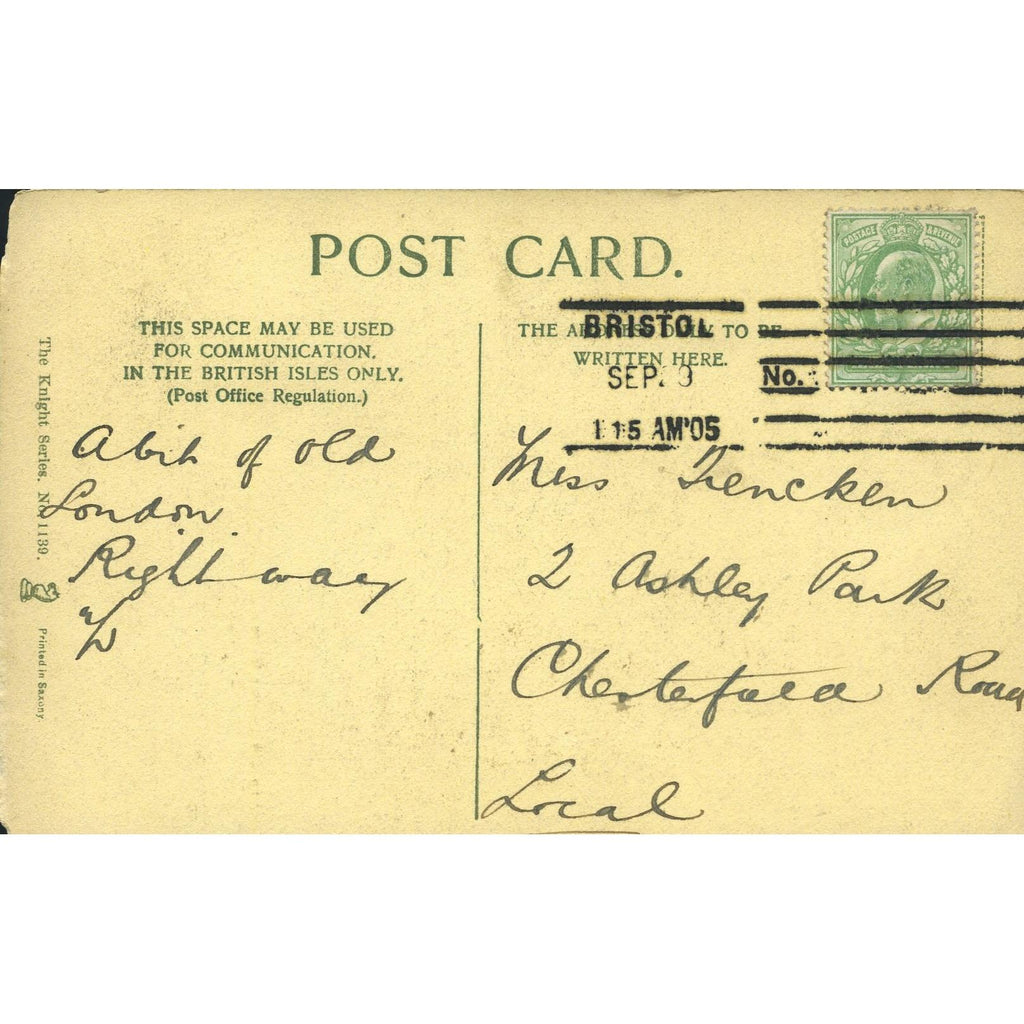 POST CARD.
THIS SPACE MAY BE USED
FOR COMMUNICATION.
IN THE BRITISH ISLES ONLY.
(Post Office Regulation.)
A bit of old
London
Right way
THE ADDRESS ONLY TO BE
WRITTEN HERE.
POSTAGE & REVENUE
BRISTOL
SEP. 9
No.
1 15 AM'05
Miss Tiencken
2 Ashley Park
Chesterfield Road
Local
The Knight Series. No. 1139.
Printed in Saxony.